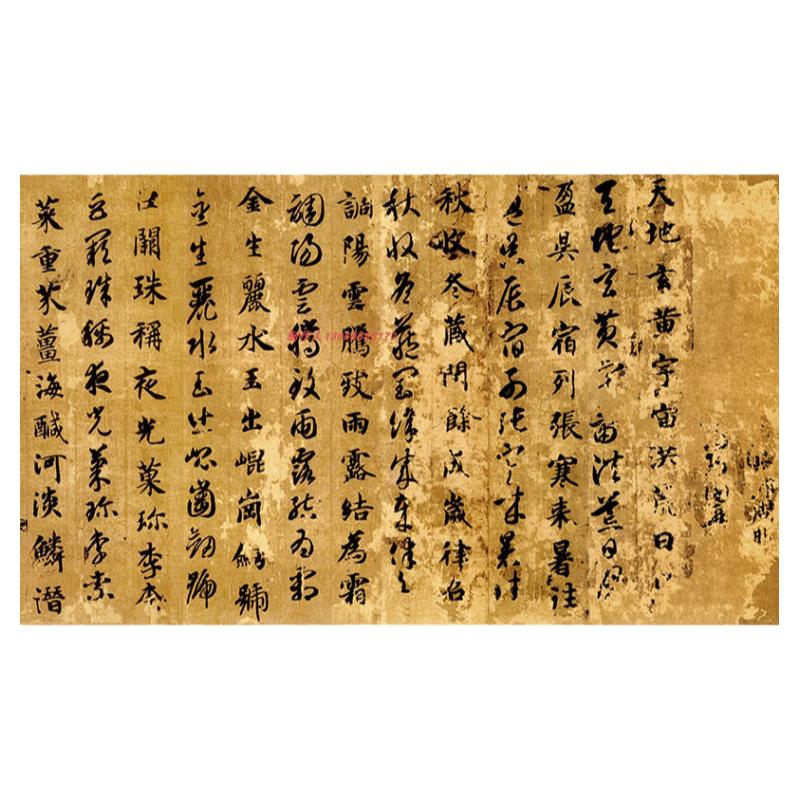 天地玄黄宇宙洪荒日月
天地玄黄宇宙洪荒日月
盈昃辰宿列張寒来暑往
盈昃辰宿列張寒来暑往
秋收冬藏閏餘成歲律召
秋收冬藏閏餘成歲律召
調陽雲騰致雨露結為霜
調陽雲騰致雨露結為霜
金生麗水玉出崐崗劍號
金生麗水玉出崐崗劍號
巨闕珠稱夜光菓珍李柰
巨闕珠稱夜光菓珍李柰
菜重芥薑海鹹河淡鱗潛